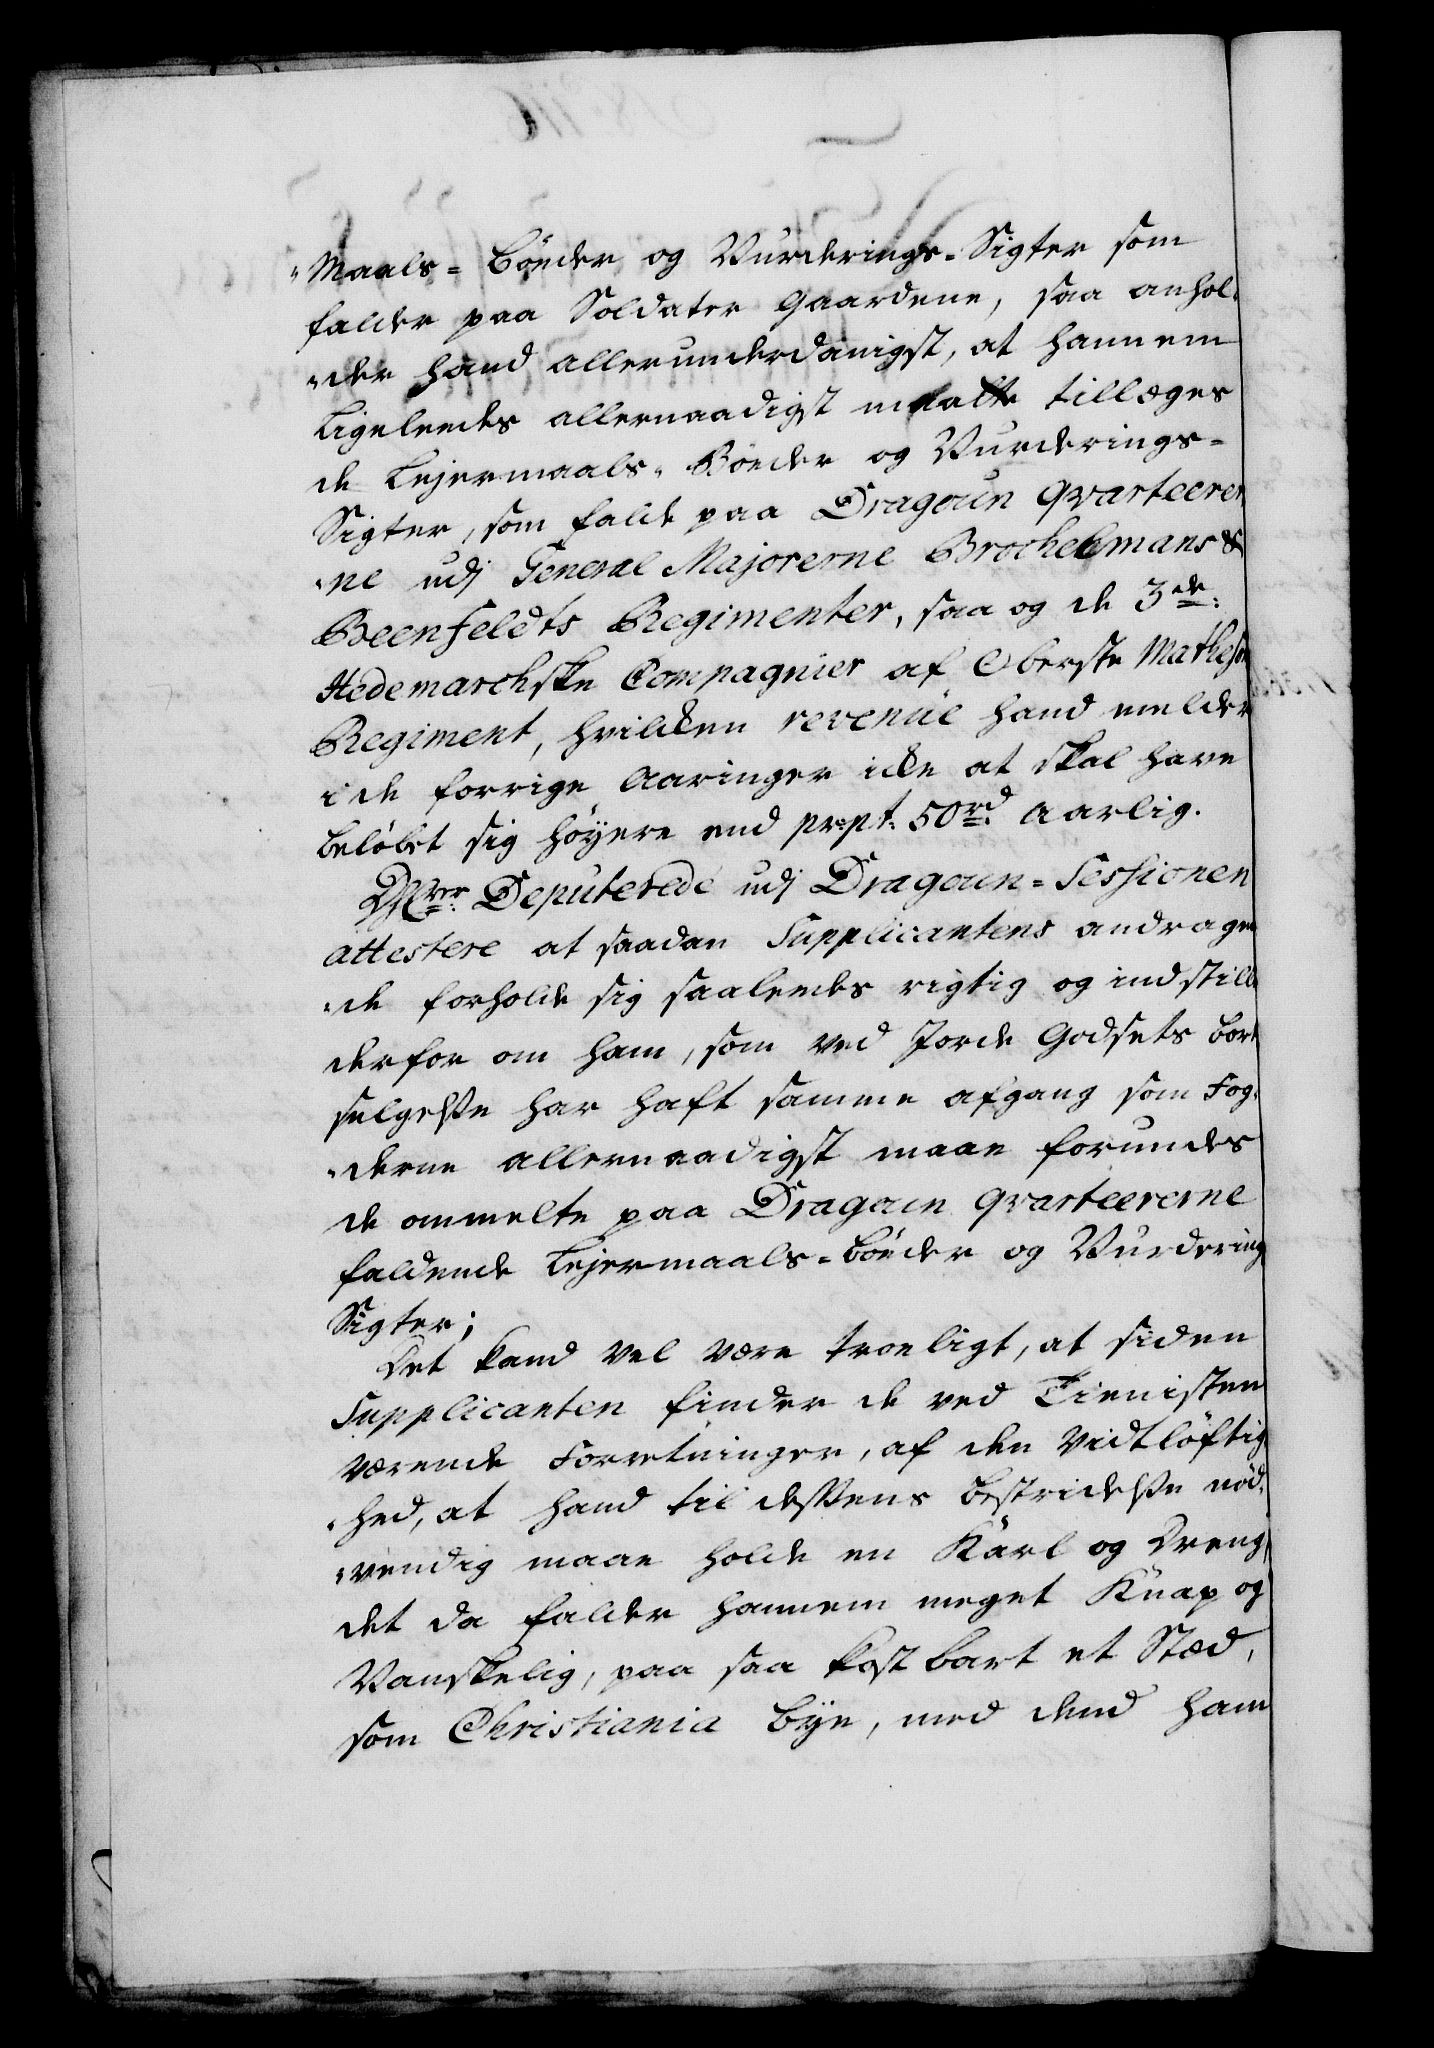 "Maals= Böeder og Vurderings-Sigter som
falder paa Soldater Gaardene, saa anhol-
"der hand allerunderdanigst, at hannem
Ligeleedes allernaadigst maatte tillæges
de Lejermaals- Böeder og Vurderings-
Sigter, som falde paa Dragoun qvarteerer
"ne udj General Majorerne Brockelmans &
Beenfeldts Regimenter, saa og de 3de:
Hedemarchske Compagnier af Oberste Mathesons
Regiment, hvilcken revenüe hand melder
i de forrige Aaringer icke at skal have
belöbet sig höyere end pr:pt: 50rd: aarlig.
Deputerede udj Dragoun-Sessionen
attestere at saadan Supplicantens andragen
"de forholde sig saaleedes rigtig og indstille
derfor om ham, som ved Jorde Godsets bort
selgelsse har haft samme afgang som Fog-
"derne allernaadigst maae forundes
de ommelte paa Dragoun qvarteererne
faldende Lejermaals-böeder og Vurdering
Sigter;
Det kand vel være troeligt, at siden
Supplicanten finder de ved Tienisten
værende Forretninger, af den Vidtlöftig
"hed, at hand til dessens bestridelsse nöd-
"vendig maae holde en Karl og Dreng,
det da falder hannem meget Knap og
Vanskelig, paa saa kostbart et Stæd,
som Christiania bye, med dend ham